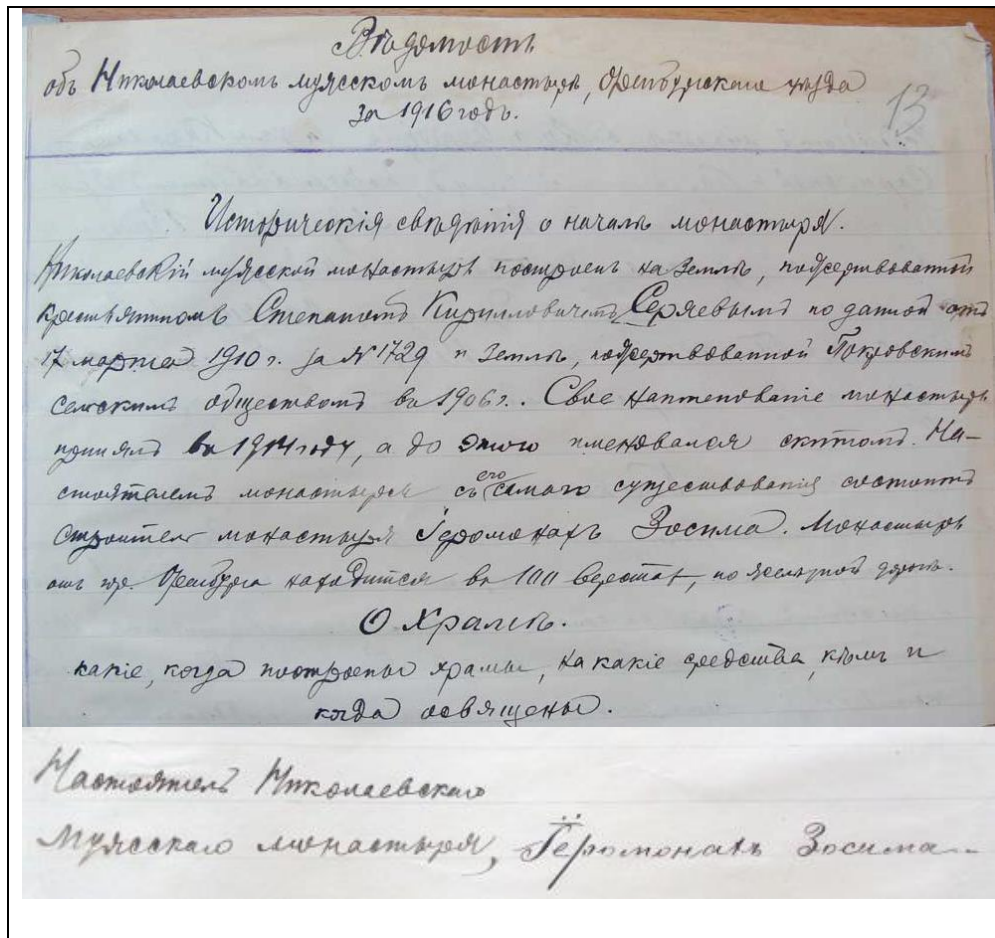 Вѣдомость
объ Николаевскомъ муясскомъ монастырѣ, Оренбургскаго уѣзда
за 1916 годъ.
13
Историческія свѣдѣнія о началѣ монастыря.
Николаевскій муясской монастырь построенъ на землѣ, пожертвованной
крестьяниномъ Степаномъ Кирилловичемъ Серяевымъ по данной отъ
17 марта 1910 г. за № 1729 и землѣ, пожертвованной Покровскимъ
сельскимъ обществомъ въ 1906 г. Свое наименованіе монастырь
принялъ въ 1914 году, а до этого именовался скитомъ. На-
стоятелемъ монастыря съ его самаго существованія состоитъ
строитель монастыря Іеромонахъ Зосима. Монастырь
отъ гор. Оренбурга находится въ 100 верстахъ, по желѣзной дорогѣ.
О Храмѣ.
какіе, когда построены храмы, на какіе средства, кѣмъ и
когда освящены.
Настоятель Николаевскаго
Муясскаго монастыря, Іеромонахъ Зосима